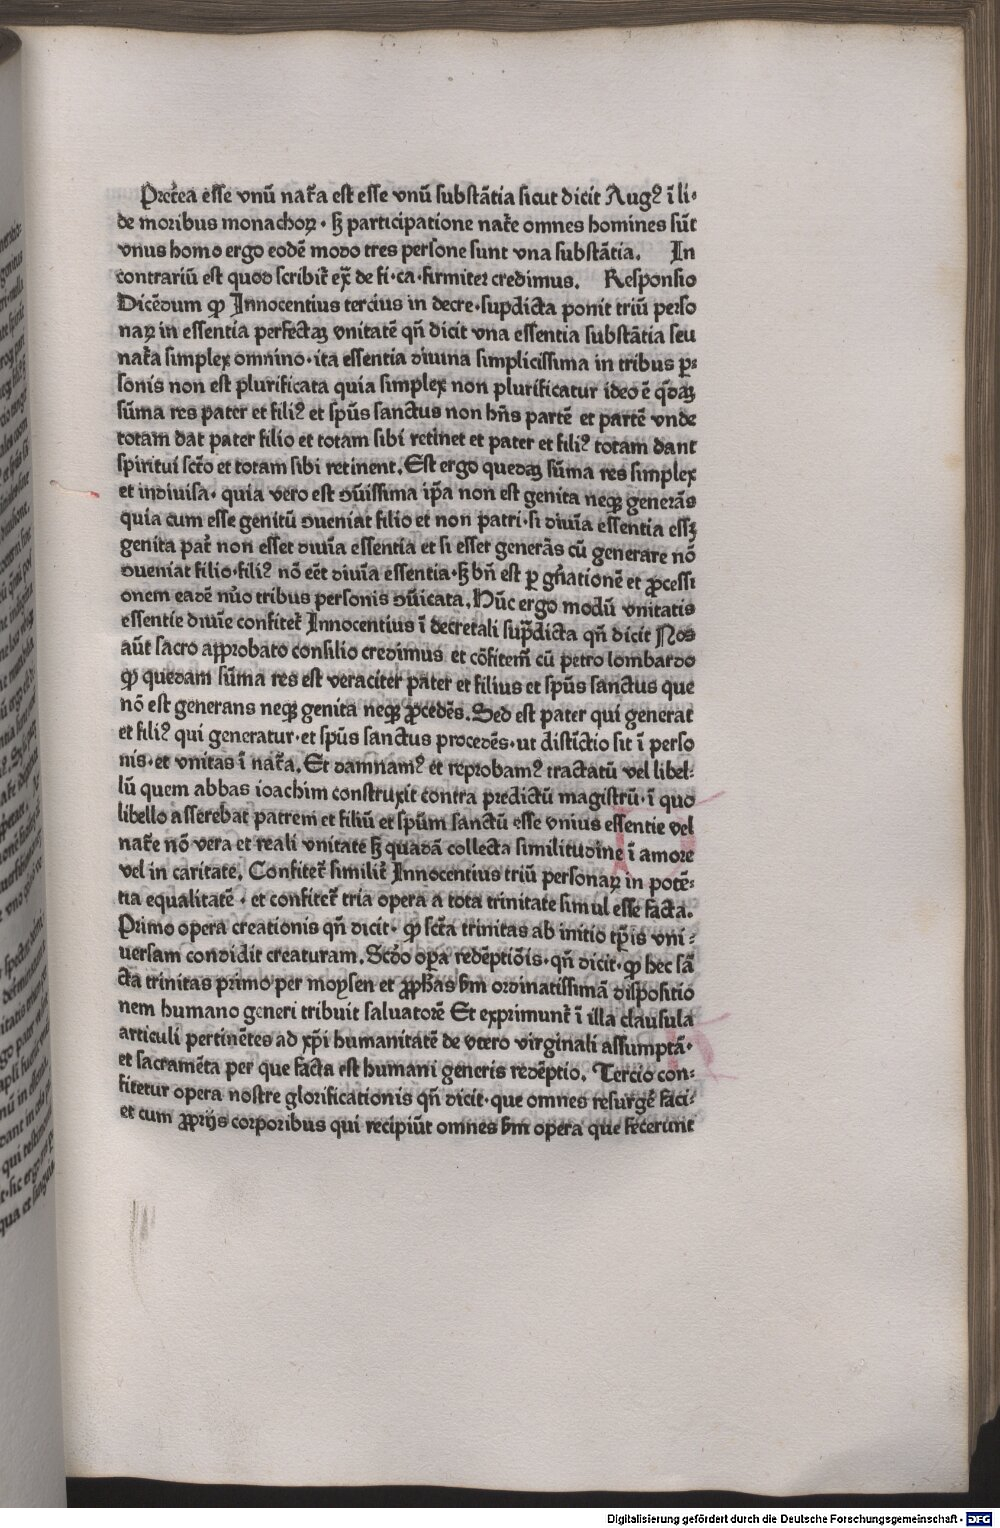 Pret̃ea esse vnū nat̃a est esse vnū substātia sicut dicit Augꝰ ī li⸗
de moribus monachoꝝ · sꝫ participatione nat̃e omnes homines sūt
vnus homo ergo eodē modo tres persone sunt vna substātia. In
contrariū est quod scribit̃ ex̃ de fi·ca·firmiter credimus. Responsio
Dicēdum ꝙ Innocentius tercius in decre·supdicta ponit triū perso
naꝝ in essentia perfectaꝫ vnitatē qn̄ dicit vna essentia substātia seu
nat̃a simplex omnino·ita essentia diuina simplicissima in tribus ꝑ⸗
sonis non est plurificata quia simplex non plurificatur ideo ē q̄daꝫ
sūma res pater et filiꝰ et spūs sanctus non hn̄s partē et partē vnde
totam dat pater filio et totam sibi retinet et pater et filiꝰ totam dant
spiritui sct̄o et totam sibi retinent. Est ergo quedaꝫ sūma res simplex
et indiuisa· quia vero est dūissima ip̄a non est genita neqꝫ generās
quia cum esse genitū ɔueniat filio et non patri·si diuīa essentia essꝫ
genita pat̃ non esset diuīa essentia et si esset generās cū generare nō
ɔueniat filio·filiꝰ nō eēt diuīa essentia·sꝫ bn̄ est ꝑ gn̄ationē et ꝓcessi
onem eadē nūo tribus personis ɔūicata. Nūc ergo modū vnitatis
essentie diuīe confitet̃ Innocentius ī decretali sup̄dicta qn̄ dicit Nos
aūt sacro approbato consilio credimus et cōfitem̄ cū petro lombardo
ꝙ quedam sūma res est veraciter pater et filius et spūs sanctus que
nō est generans neqꝫ genita neqꝫ ꝓcedēs. Sed est pater qui generat
et filiꝰ qui generatur·et spūs sanctus procedēs·ut distīctio sit ī perso
nis·et vnitas ī nat̃a. Et damnamꝰ et reprobamꝰ tractatū vel libel⸗
lū quem abbas ioachim construxit contra predictū magistrū·ī quo
libello asserebat patrem et filiū et spūm sanctū esse vnius essentie vel
nat̃e nō vera et reali vnitate sꝫ quadā collecta similitudīne ī amore
vel in caritate. Confitet̃ similit̃ Innocentius triū personaꝝ in potē⸗
tia equalitatē · et confitet̃ tria opera a tota trinitate simul esse facta.
Primo opera creationis qn̄ dicit· ꝙ sct̄a trinitas ab initio tp̄is vni⸗
uersam condidit creaturam. Scd̄o oꝑa redēptiōis·qn̄ dicit·ꝙ hec sā
cta trinitas primo per moysen et ꝓph̄as ẜm ordinatissimā dispositio
nem humano generi tribuit saluatorē Et exprimunt̃ ī illa clausula
articuli pertinētes ad xp̄i humanitatē de vtero virginali assumptā·
et sacramēta per que facta est humani generis redēptio. Tercio con⸗
fitetur opera nostre glorificationis qn̄ dicit·que omnes resurgēt faci⸗
et cum ꝓprijs corporibus qui recipiūt omnes ẜm opera que fecerunt
Digitalisierung gefördert durch die Deutsche Forschungsgemeinschaft - DFG